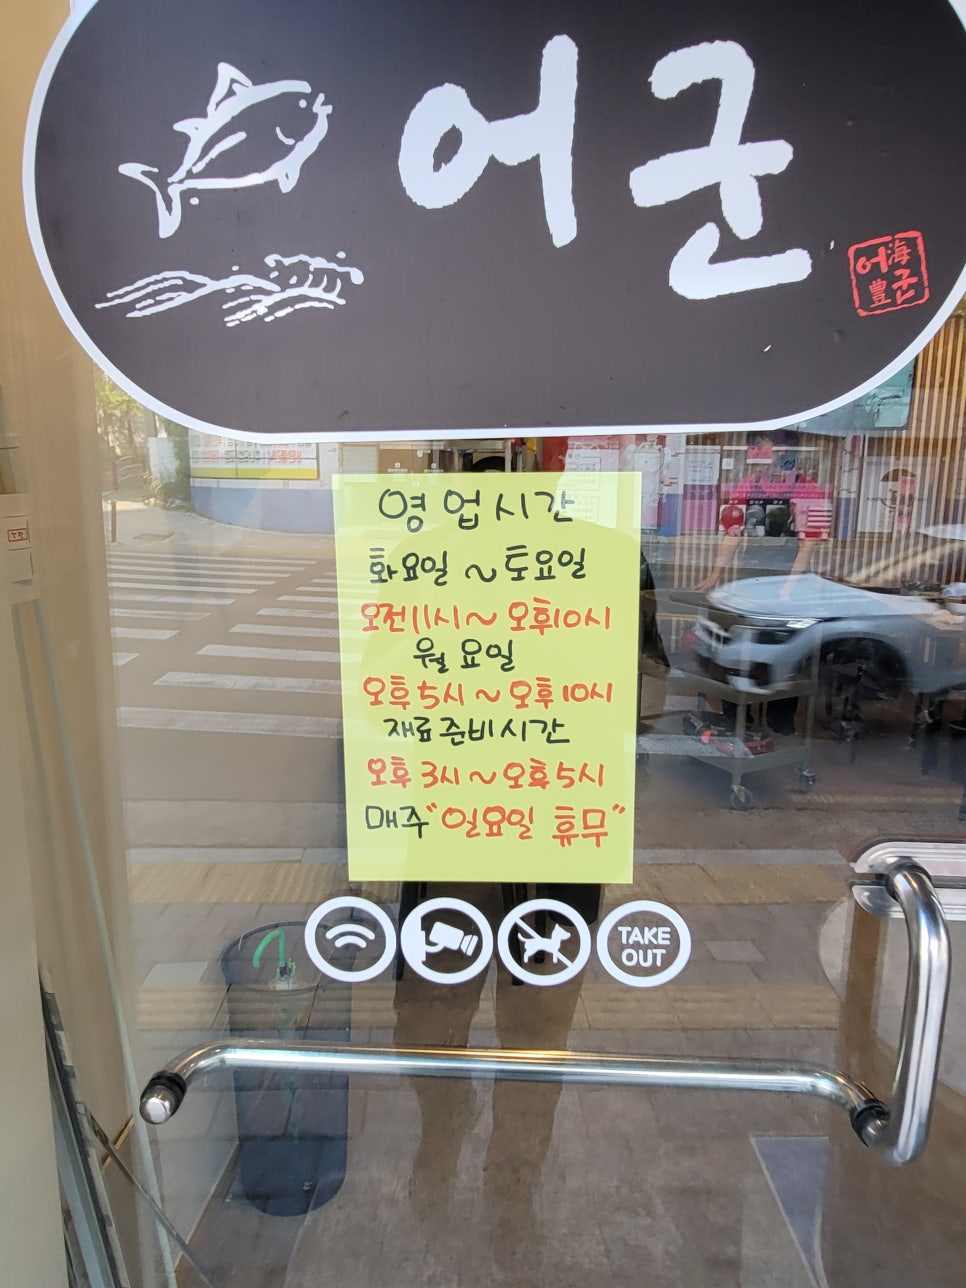 어군
어海
豊군
영업시간
화요일 ~ 토요일
오전11시 ~ 오후10시
월요일
오후5시 ~ 오후10시
재료준비시간
오후 3시 ~ 오후5시
매주 "일요일 휴무"
TAKE
OUT